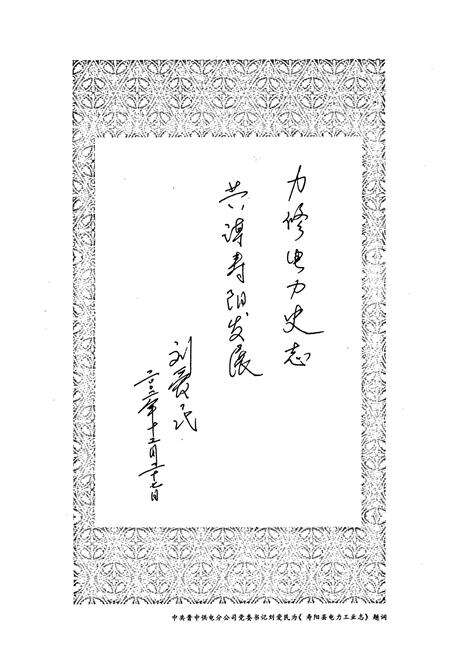 力修电力史志
共谱寿阳发展
刘爱民
二〇〇二年十二月二十七日
中共晋中供电分公司党委书记刘爱民为《寿阳县电力工业志》题词